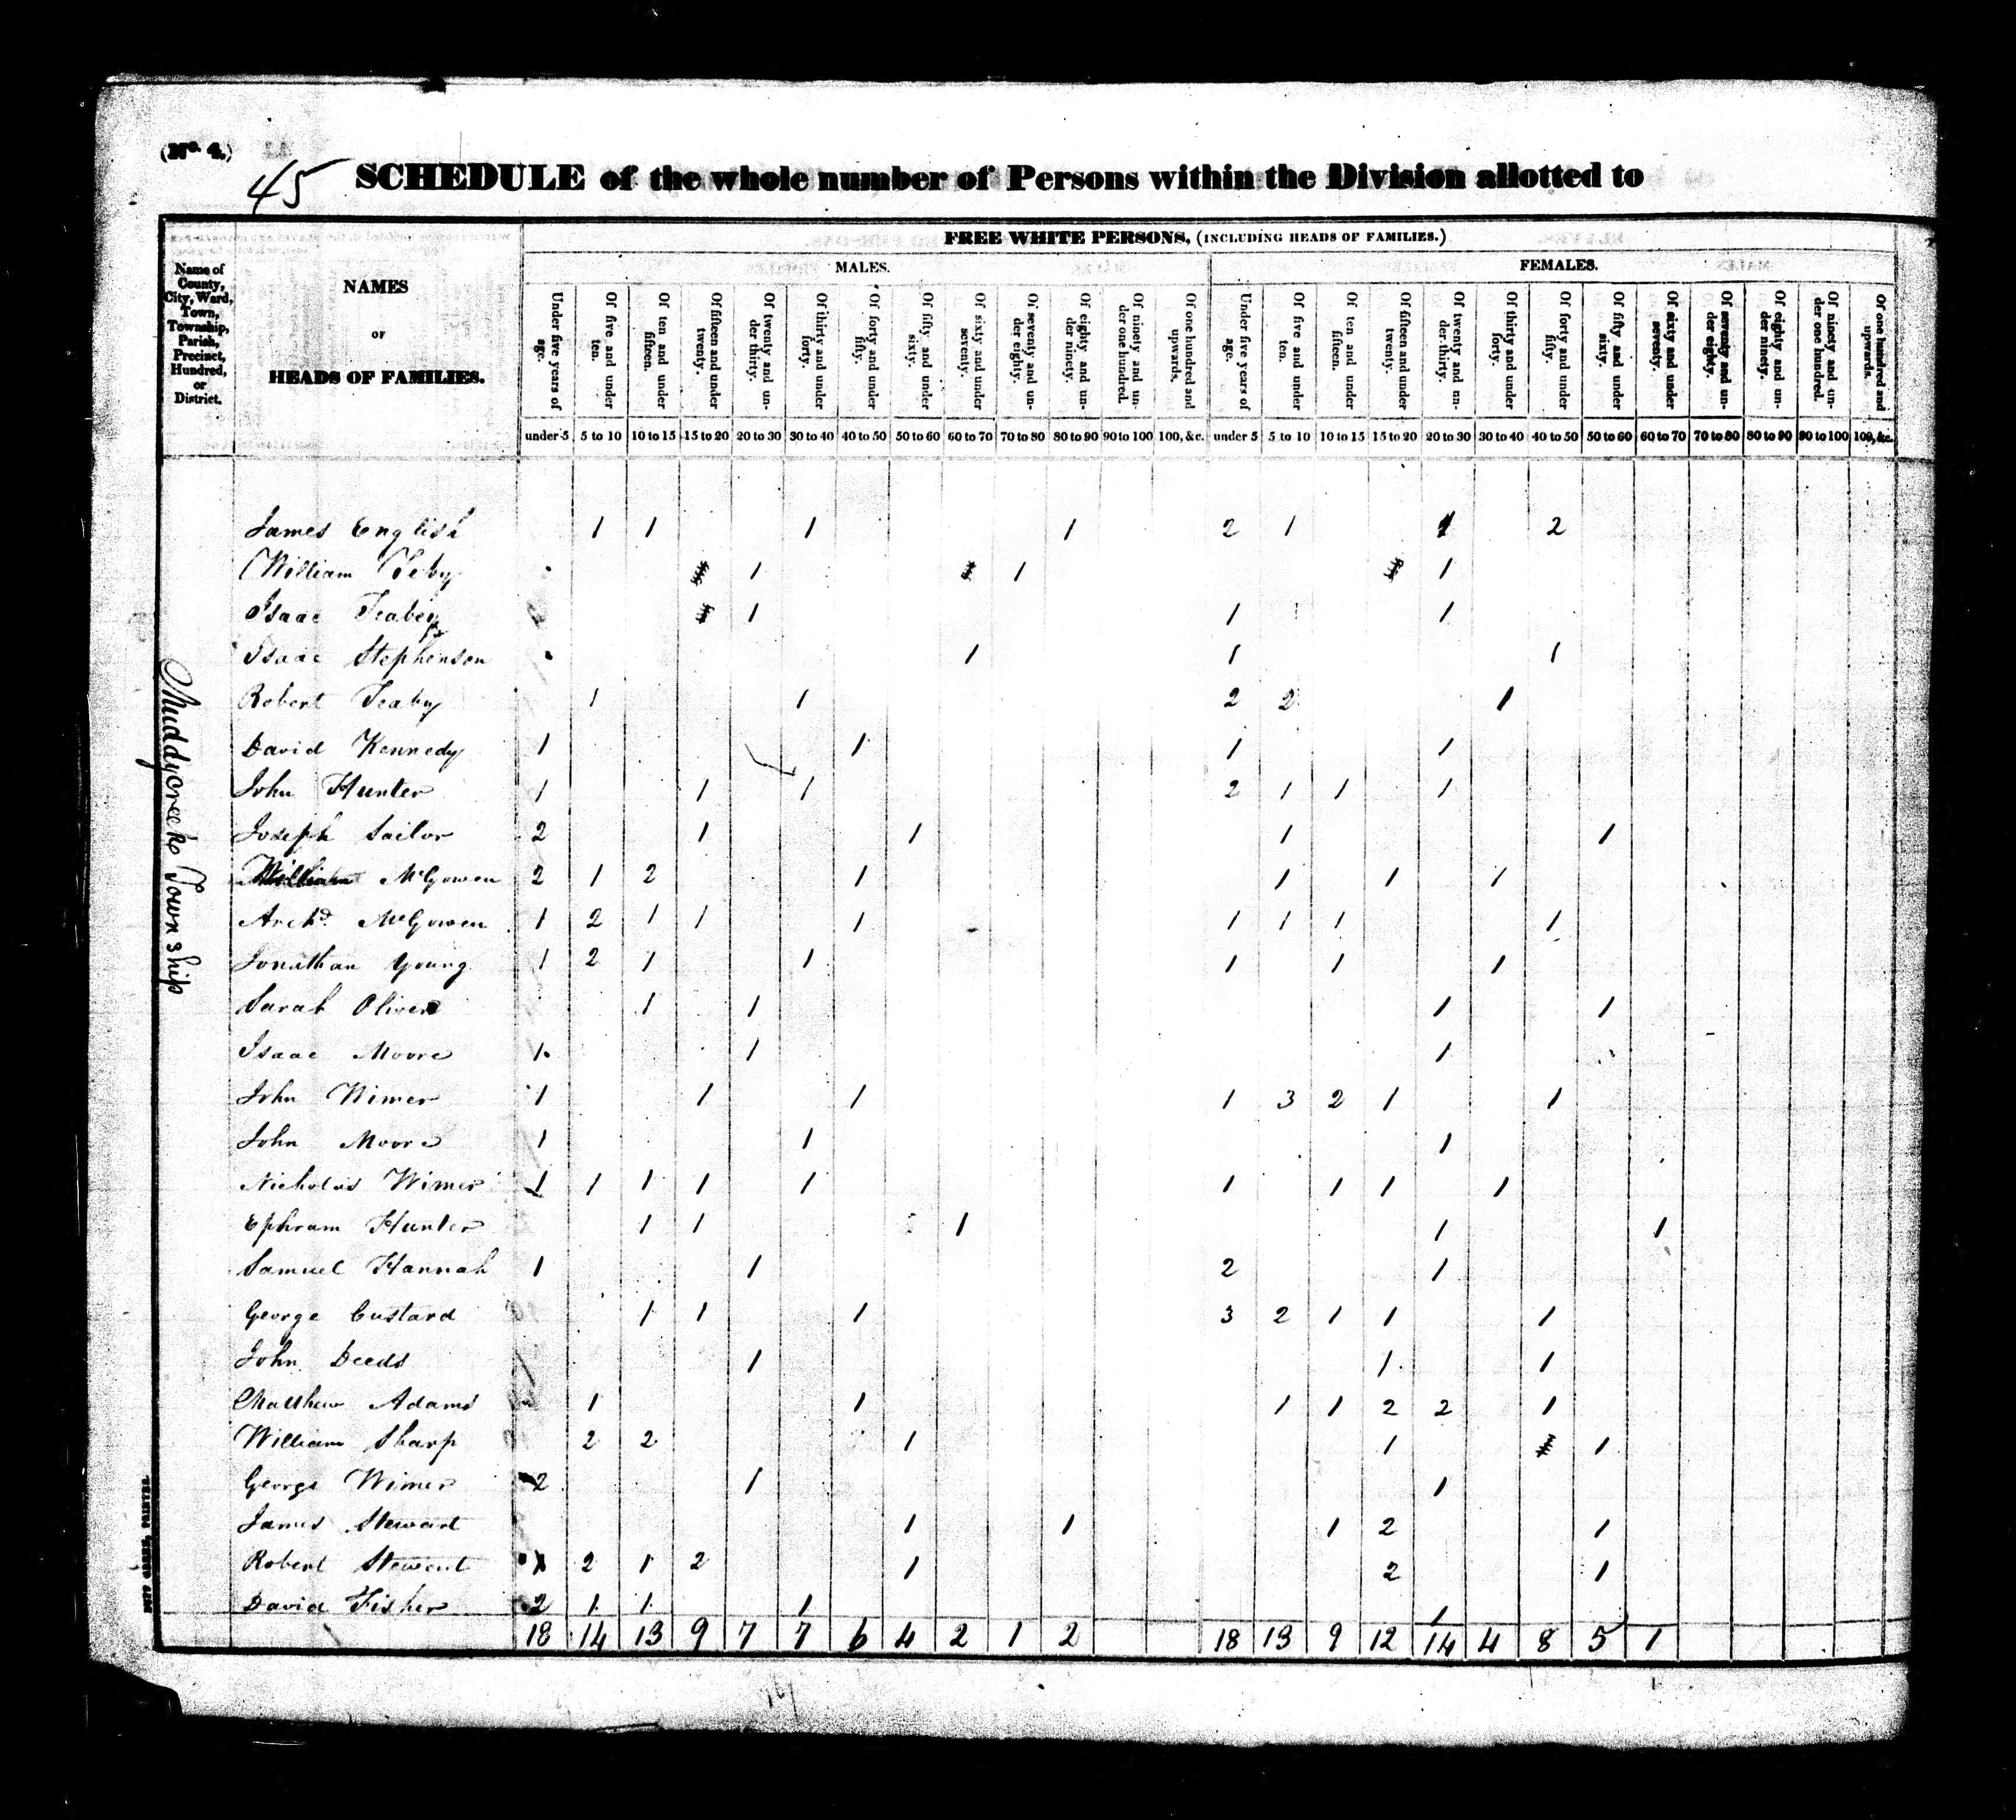 (No. 4.)
45
SCHEDULE of the whole number of Persons within the Division allotted to
FREE WHITE PERSONS, (INCLUDING HEADS OF FAMILIES.)
MALES. FEMALES.
Name of County, City, Ward, Town, Township, Parish, Precinct, Hundred, or District.
NAMES
OF
HEADS OF FAMILIES.
Under five years of age. Of five and under ten. Of ten and under fifteen. Of fifteen and under twenty. Of twenty and under thirty. Of thirty and under forty. Of forty and under fifty. Of fifty and under sixty. Of sixty and under seventy. Of seventy and under eighty. Of eighty and under ninety. Of ninety and under one hundred. Of one hundred and upwards. Under five years of age. Of five and under ten. Of ten and under fifteen. Of fifteen and under twenty. Of twenty and under thirty. Of thirty and under forty. Of forty and under fifty. Of fifty and under sixty. Of sixty and under seventy. Of seventy and under eighty. Of eighty and under ninety. Of ninety and under one hundred. Of one hundred and upwards.
under 5 5 to 10 10 to 15 15 to 20 20 to 30 30 to 40 40 to 50 50 to 60 60 to 70 70 to 80 80 to 90 90 to 100 100, &c. under 5 5 to 10 10 to 15 15 to 20 20 to 30 30 to 40 40 to 50 50 to 60 60 to 70 70 to 80 80 to 90 90 to 100 100, &c.
Muddycreek Township
James English 1 1 1 1 2 1 1 2
William 1 1 1
Isaac 1 1 1
Isaac Stephenson 1 1 1
Robert 1 1 2 2 1
David Kennedy 1 1 1 1
John Hunter 1 1 1 2 1 1 1
Joseph Sailor 2 1 1 1 1
William McGowen 2 1 2 1 1 1 1
Archd. McGowen 1 2 1 1 1 1 1 1 1
Jonathan Young 1 2 1 1 1 1 1
Sarah Oliver 1 1 1 1
Isaac Moore 1 1 1
John Wimer 1 1 1 1 3 2 1 1
John Moore 1 1 1
Nicholas Wimer 1 1 1 1 1 1 1 1 1
Ephram Hunter 1 1 1 1 1
Samuel Hannah 1 1 2 1
George Custard 1 1 1 3 2 1 1 1
John Deeds 1 1 1
Matthew Adams 1 1 1 1 2 2 1
William Sharp 2 2 1 1 1
George Wimer 2 1 1
James Stewart 1 1 1 2 1
Robert Stewart 2 1 2 1 2 1
David Fisher 2 1 1 1 1
18 14 13 9 7 7 6 4 2 1 2 18 13 9 12 14 4 8 5 1